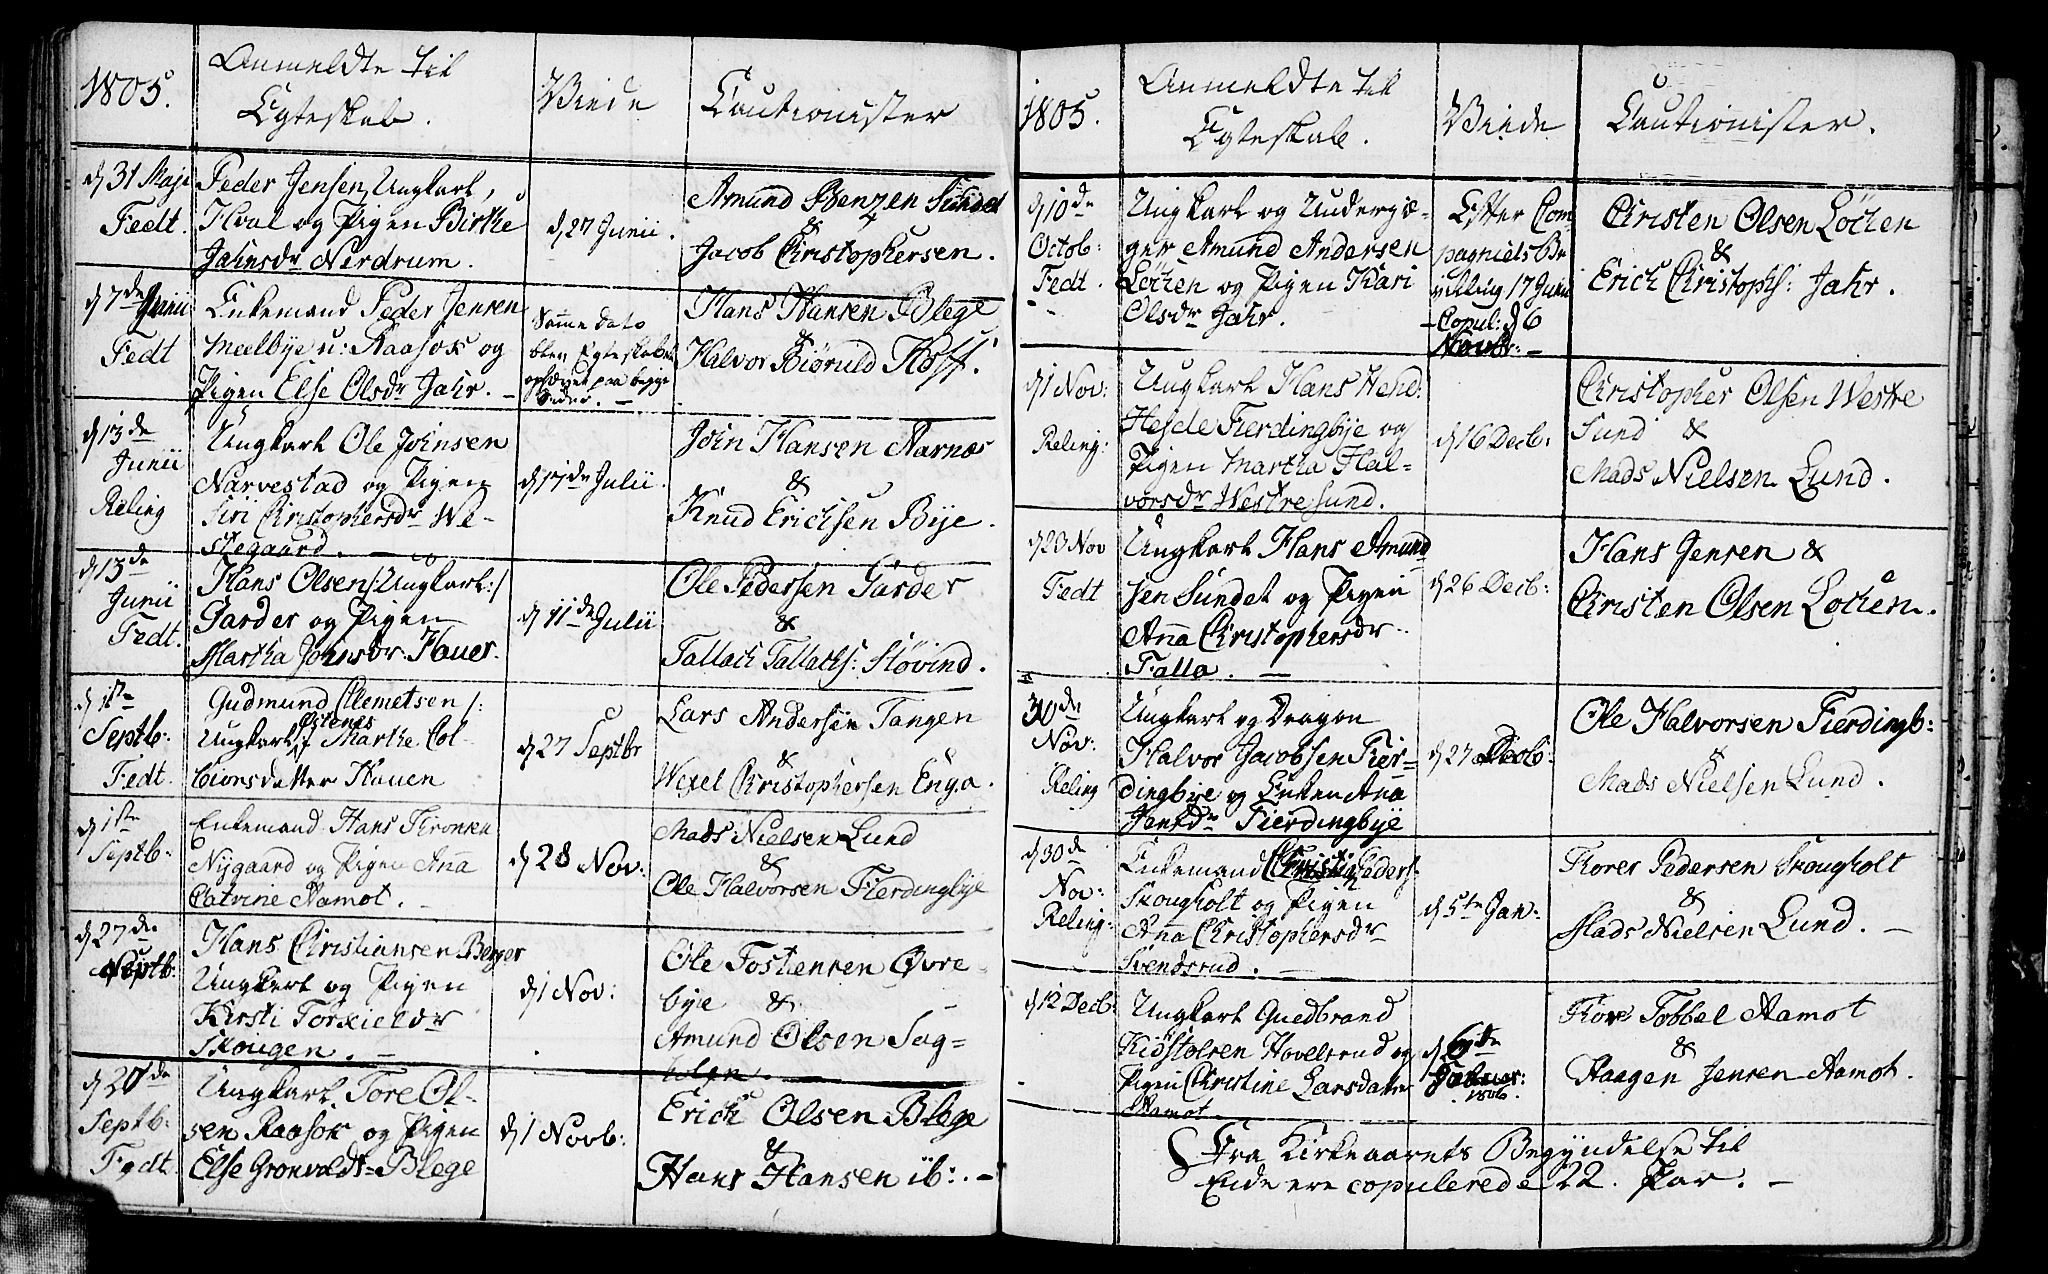 1805.
Anmeldte til
Egteskab.
Viede
Cautionister
d 31 Maji
Fedt.
Peder Jensen, Ungkarl,
Hval og Pigen Birthe
Jahnsdr Nerdrum.
d 27 Junii.
Amund Benzen Sundet
&
Jacob Christophersen.
d 7de Junii
Fedt
Enkemand Peder Jensen
Meelbye u: Raasok og
Pigen Else Olsdr Jahr. -
Samme dato
blev Egteskabet
ophævet paa begge
Sider. -
Hans Hansen Blege
&
Halvor Biøruld Hoff.
d 13de
Junii
Reling
Ungkarl Ole Johnsen
Narvestad og Pigen
Siri Christophersdr We-
stegaard. -
d 17de Julii.
John Hansen Aarnæs
&
Knud Erichsen Bye.
d 13de
Junii
Fedt.
Hans Olsen /:Ungkarl:/
Garder og Pigen
Martha Johnsdr. Hauer.
d 11de Julii
Ole Pedersen Garder
&
Tallach Tallachs: Støvind.
d 1ste
Septb:
Fedt.
Gudmund Clemetsen /:
Ungkarl :/ Østenes Marthe Col-
biønsdatter Hauen
d 27 Septbr
Lars Andersen Tangen
&
Wexel Christophersen Enga.
d 1ste
Septb:
Enkemand Hans Thronsen
Nygaard og Pigen Anna
Catrine Aamot. -
d 28 Nov:
Mads Nielsen Lund
&
Ole Halvorsen Fierdingbye
d 27de
Septb:
Hans Christiansen Berger
Ungkarl og Pigen
Kirsti Torkieldr
Skougen. -
d 1 Nov:
Ole Tostensen Øvre-
bye & -
Amund Olsen Sag-
stuen. -
d 20de
Septb:
Fedt.
Ungkarl Tore Ol-
sen Raasok og Pigen
Else Gronvoldt= Blege
d 1 Novb:
Erich Olsen Blege
&
Hans Hansen ib:. -
1805.
Anmeldte til
Egteskab.
Viede
Cautionister.
d 10de
Octob:
Fedt.
Ungkarl og Undergiæ-
ger Amund Andersen
Løchen og Pigen Kari
Olsdr Jahr.
Efter Com
pagniets Be
villing 17 Juni
- Copul: d 6
Novbr: -
Christen Olsen Løchen
&
Erich Christophs: Jahr.
d 1 Nov:
Reling:
Ungkarl Hans Hend:
Hesde Fierdingbye og
Pigen Martha Hal-
vorsdr Westresund.
d 16 Decb:
Christopher Olsen Westre
Sund &
Mads Nielsen Lund.
d 23 Nov
Fedt
Ungkarl Hans Amund
sen Sundet og Pigen
Anna Christophersdr.
Falla. -
d 26 Decb:
Hans Jensen &
Christen Olsen Lochen.
30de
Nov:
Reling
Ungkarl og Dragon
Halvor Jacobsen Fier-
dingbye og Enken Ana
Jensdr Fierdingbye
d 27 Decb:
Ole Halvorsen Fierdingb:
&
Mads Nielsen Lund.
d 30de
Nov:
Reling:
Enkemand Christen Peders:
Skougholt og Pigen
Anna Christophersdr
Svendsrud. -
d 5te Jan:
Thorer Pedersen Skougholt
&
Mads Nielsen Lund. -
d 12 Decb:
Ungkarl Guedbrand
Kiøstolsen Hovelsrud og
Pigen Christine Larsdatter
Aamot.
d 6de
1806.
Thore Tobbel Aamot
&
Haagen Jensen Aamot.
Fra Kirkeaarets Begyndelse til
Ende ere copulerede 22. Par. -